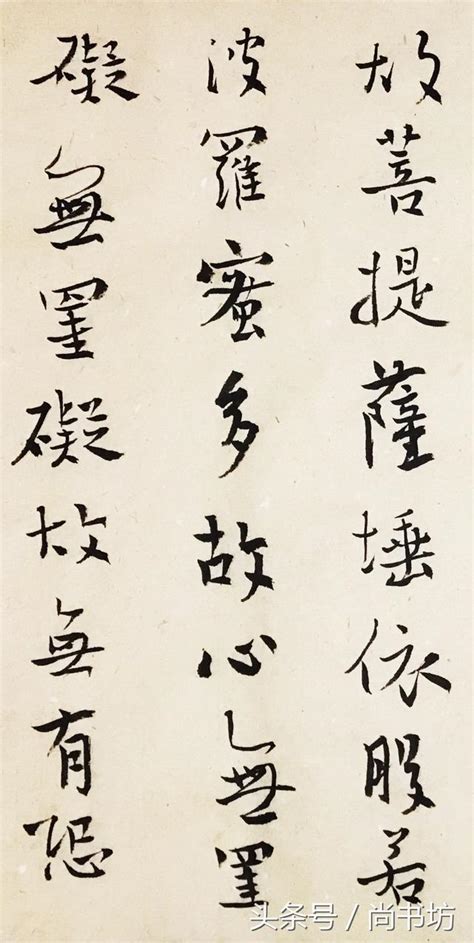 故菩提薩埵依般若
波羅蜜多故心無罣
礙無罣礙故無有恐
头条号 / 尚书坊